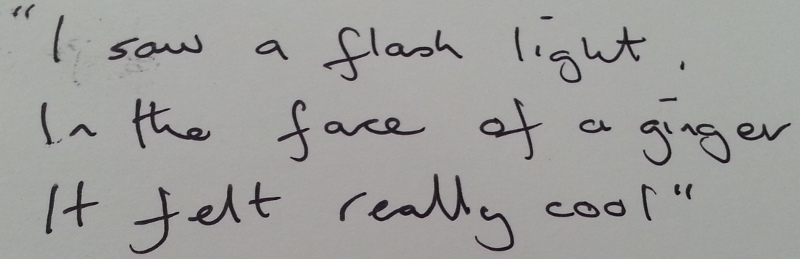 "I saw a flash light.
In the face of a ginger
It felt really cool"